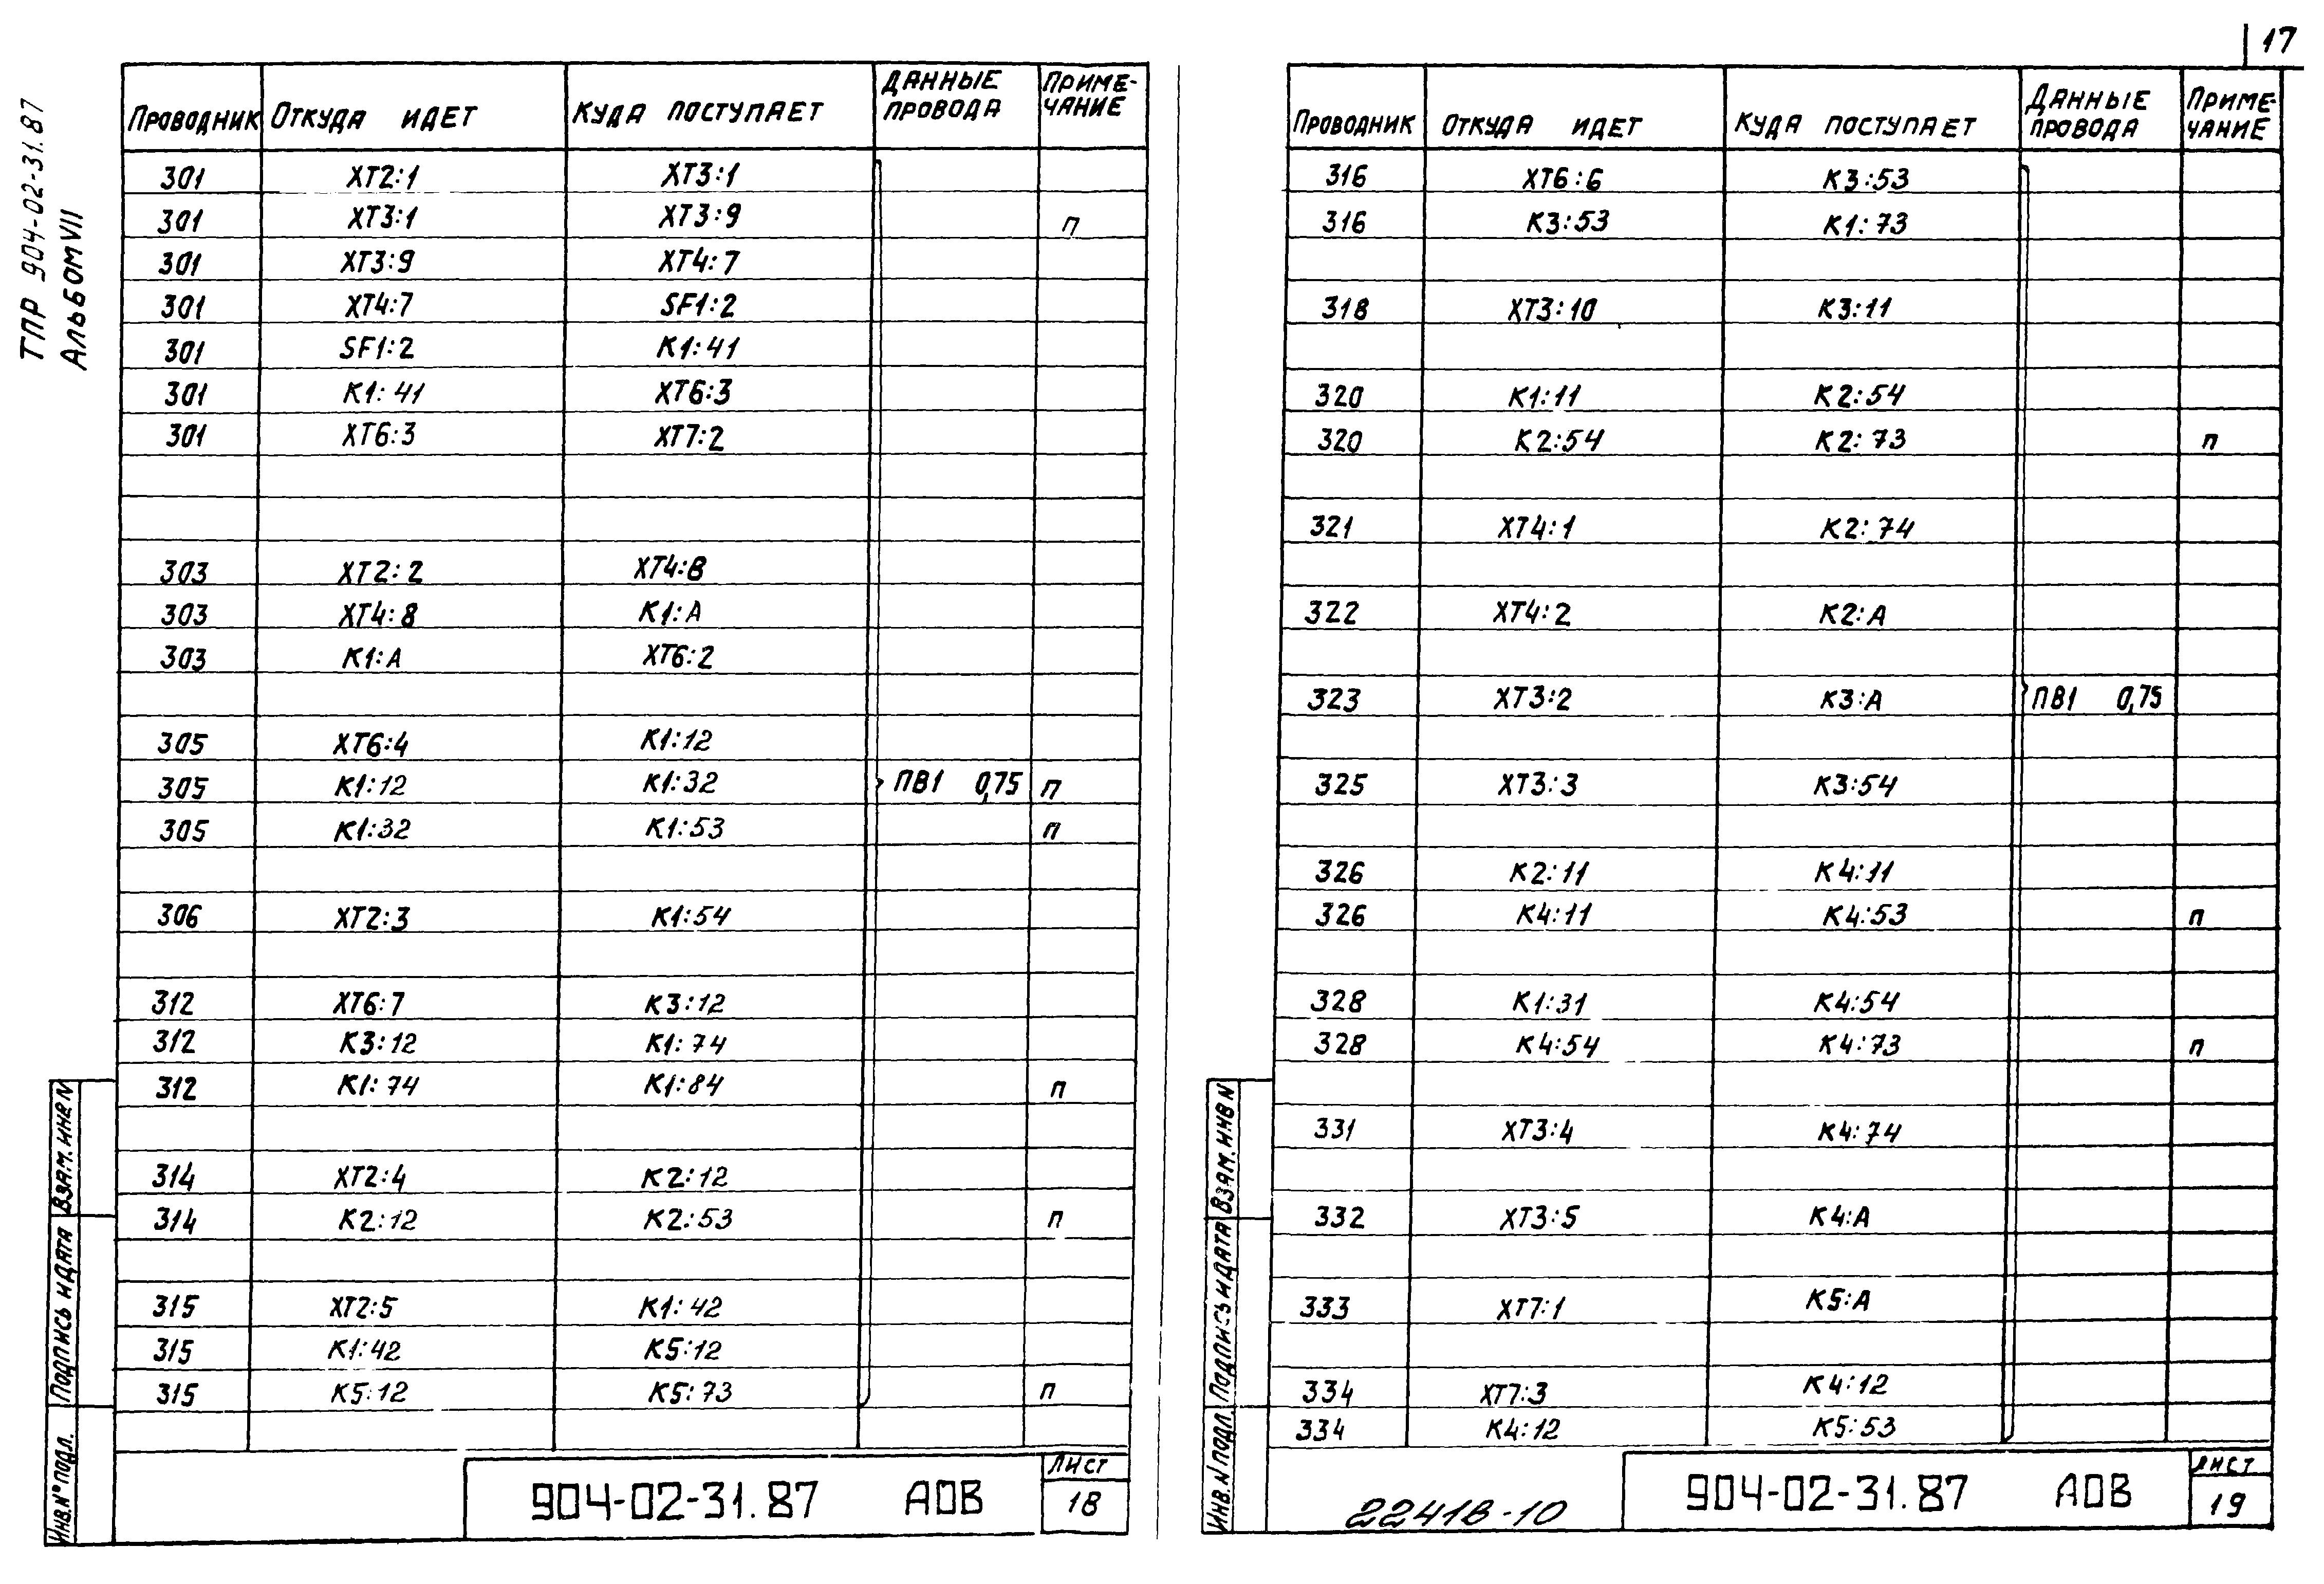 17
ТПР 904-02-31.87
Альбом VII
Проводник Откуда идет Куда поступает Данные провода Приме-чание
301 XT2:1 XT3:1
301 XT3:1 XT3:9 п
301 XT3:9 XT4:7
301 XT4:7 SF1:2
301 SF1:2 K1:41
301 K1:41 XT6:3
301 XT6:3 XT7:2
303 XT2:2 XT4:8
303 XT4:8 K1:A
303 K1:A XT6:2
305 XT6:4 K1:12
305 K1:12 K1:32 ПВ1 0,75 п
305 K1:32 K1:53 п
306 XT2:3 K1:54
312 XT6:7 K3:12
312 K3:12 K1:74
312 K1:74 K1:84 п
314 XT2:4 K2:12
314 K2:12 K2:53 п
315 XT2:5 K1:42
315 K1:42 K5:12
315 K5:12 K5:73 п
Инв.№ подл. Подпись и дата Взам.инв N
904-02-31.87 АОВ
Лист
18
Проводник Откуда идет Куда поступает Данные провода Приме-чание
316 XT6:6 K3:53
316 K3:53 K1:73
318 XT3:10 K3:11
320 K1:11 K2:54
320 K2:54 K2:73 п
321 XT4:1 K2:74
322 XT4:2 K2:A
323 XT3:2 K3:A ПВ1 0,75
325 XT3:3 K3:54
326 K2:11 K4:11
326 K4:11 K4:53 п
328 K1:31 K4:54
328 K4:54 K4:73 п
331 XT3:4 K4:74
332 XT3:5 K4:A
333 XT7:1 K5:A
334 XT7:3 K4:12
334 K4:12 K5:53
Инв.N подл. Подпись и дата Взам.инв N
22418-10
904-02-31.87 АОВ
Лист
19